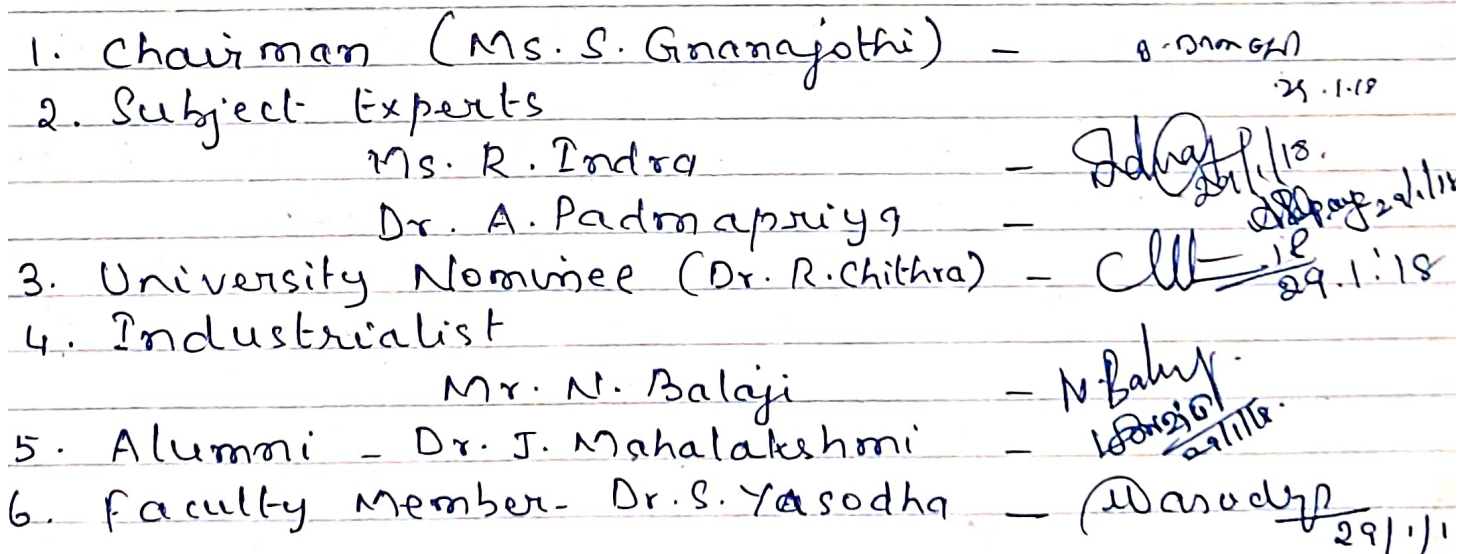 1. Chairman (Ms. S. Gnanajothi) -
29.1.18
2. Subject Experts
Ms. R. Indra -
Dr. A. Padmapriya -
3. University Nominee (Dr. R. Chithra) - 29.1.18
4. Industrialist
Mr. N. Balaji - N. Balaji
5. Alumni - Dr. J. Mahalakshmi -
6. Faculty Member - Dr. S. Yasodha - 29/1/1